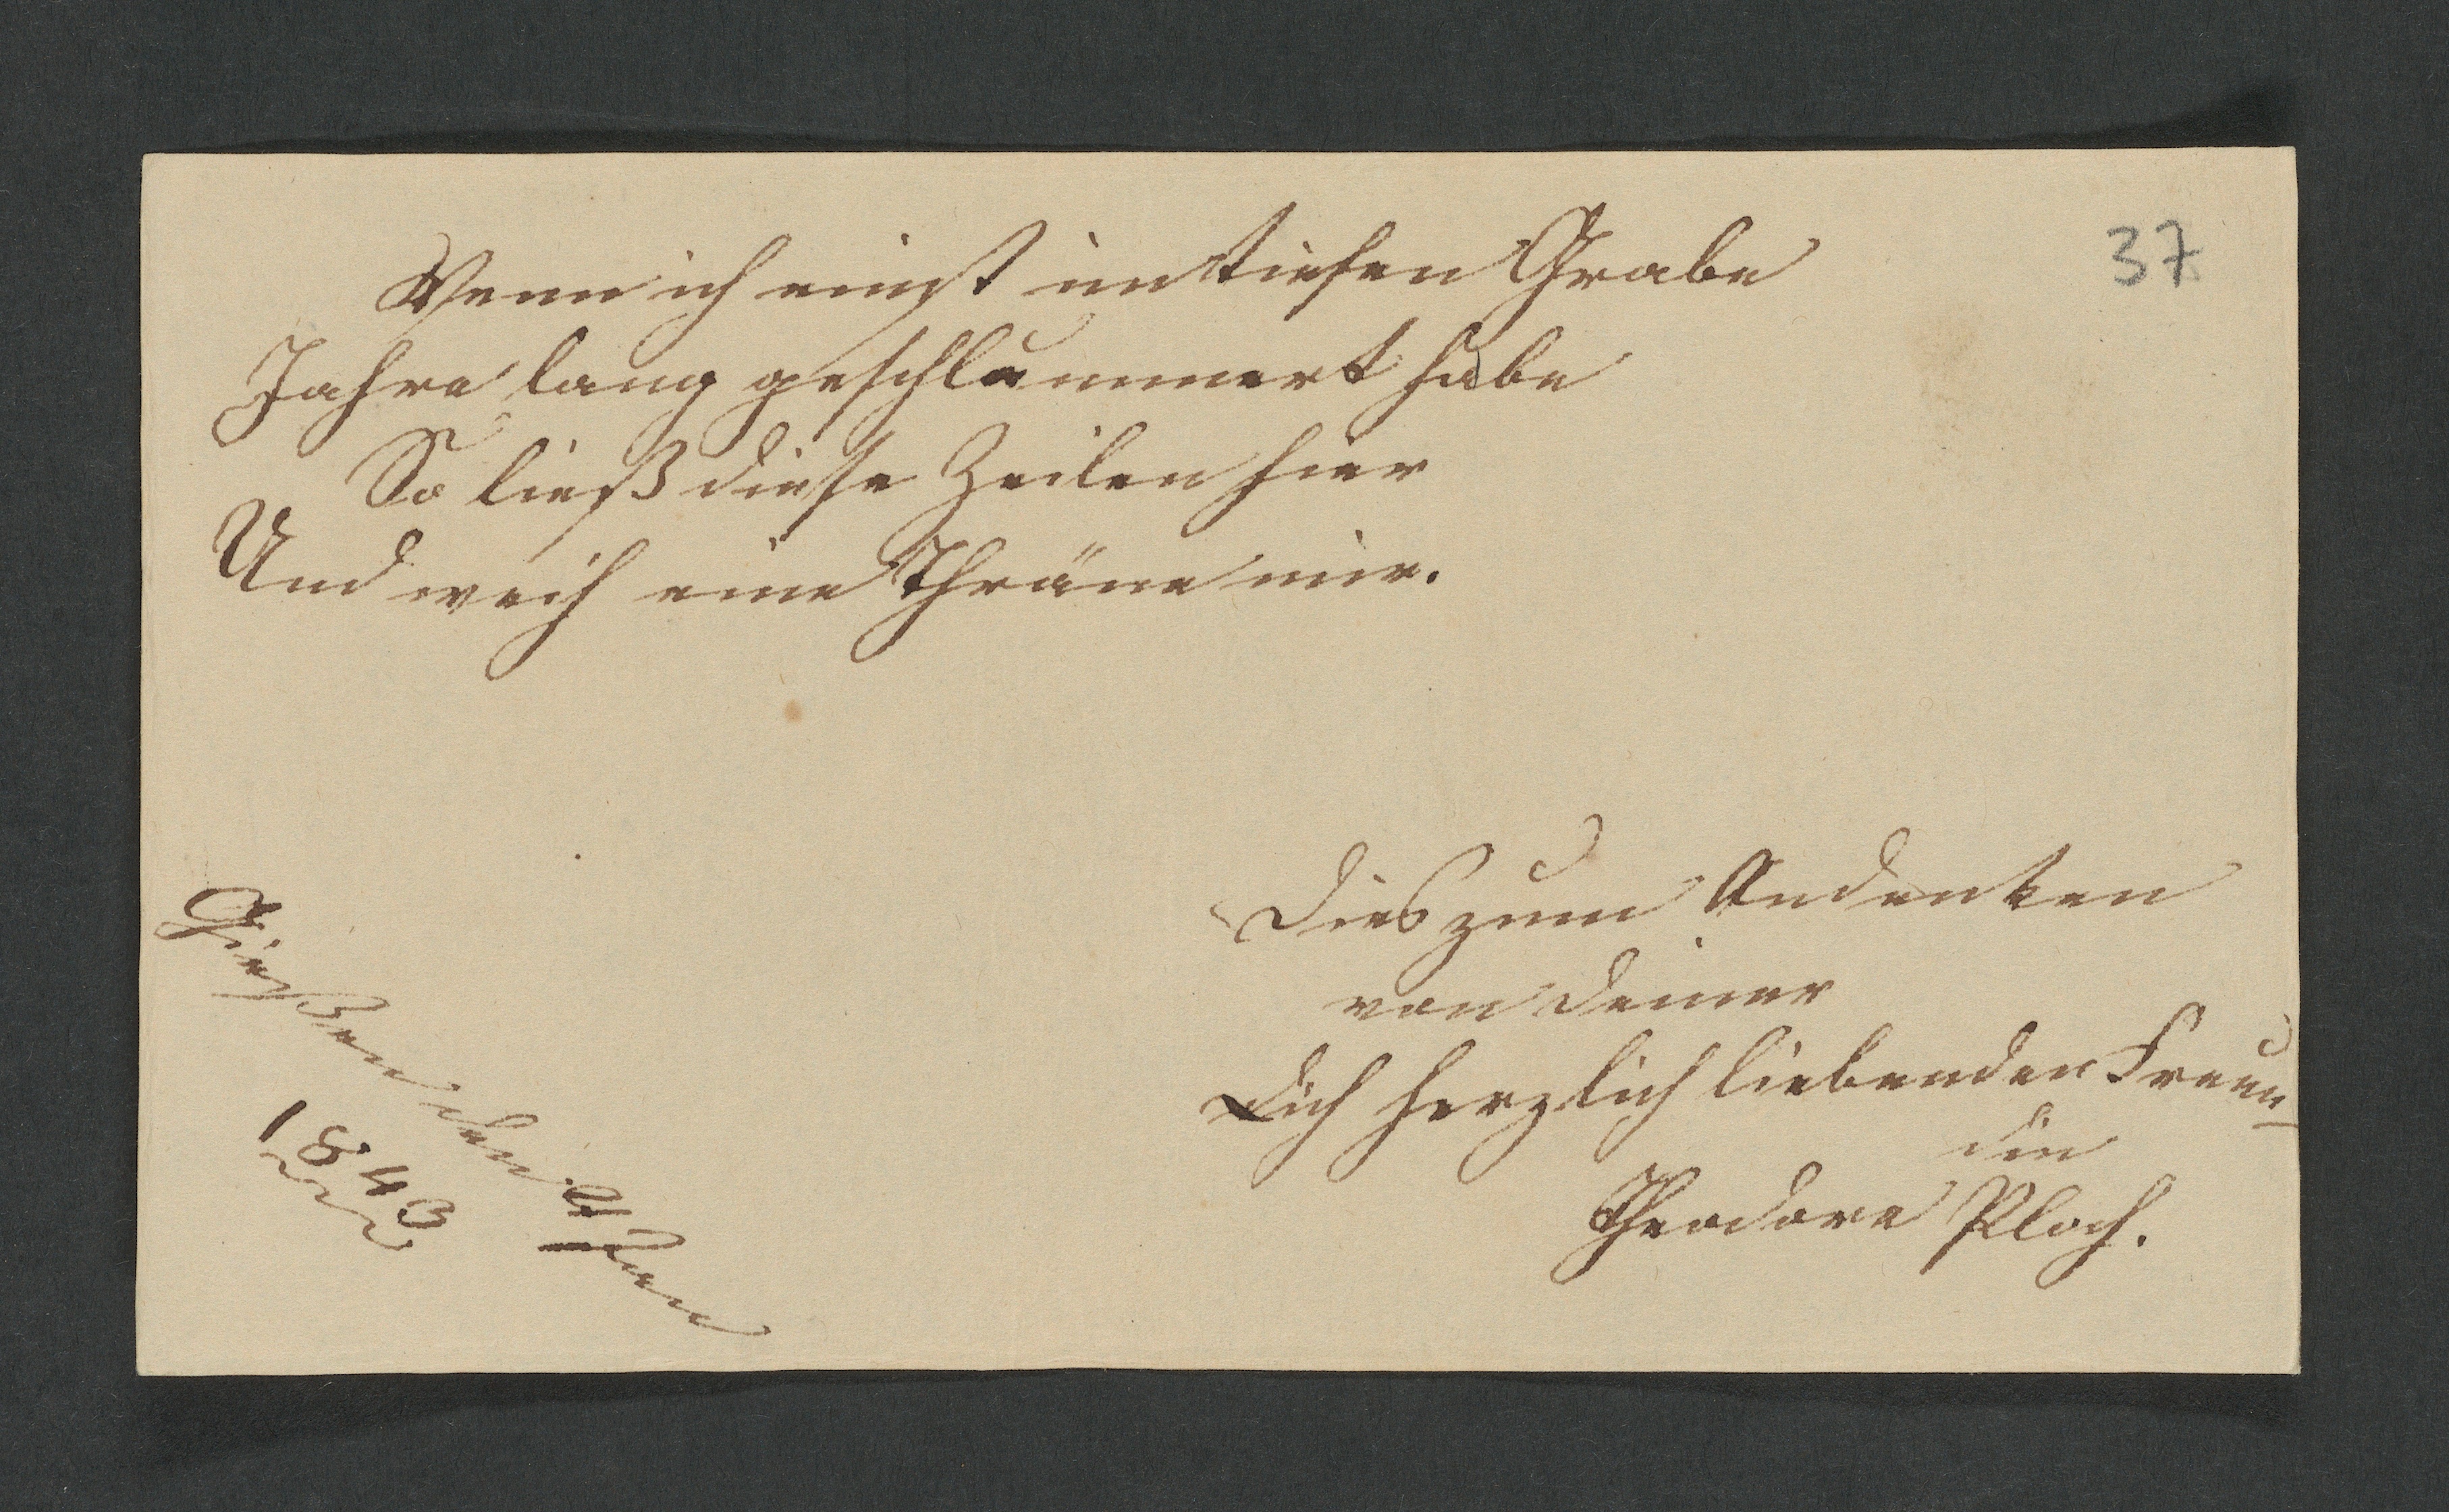 37
Wenn ich einst im tiefen Grabe
Jahre lang geschlummert habe
So ließ diese Zeilen hier
Und weih eine Thräne mir.
Dies zum Andenken
von Deiner
Dich herzlich liebenden Freun-
din
Theodore Ploch.
Gießen den
1843